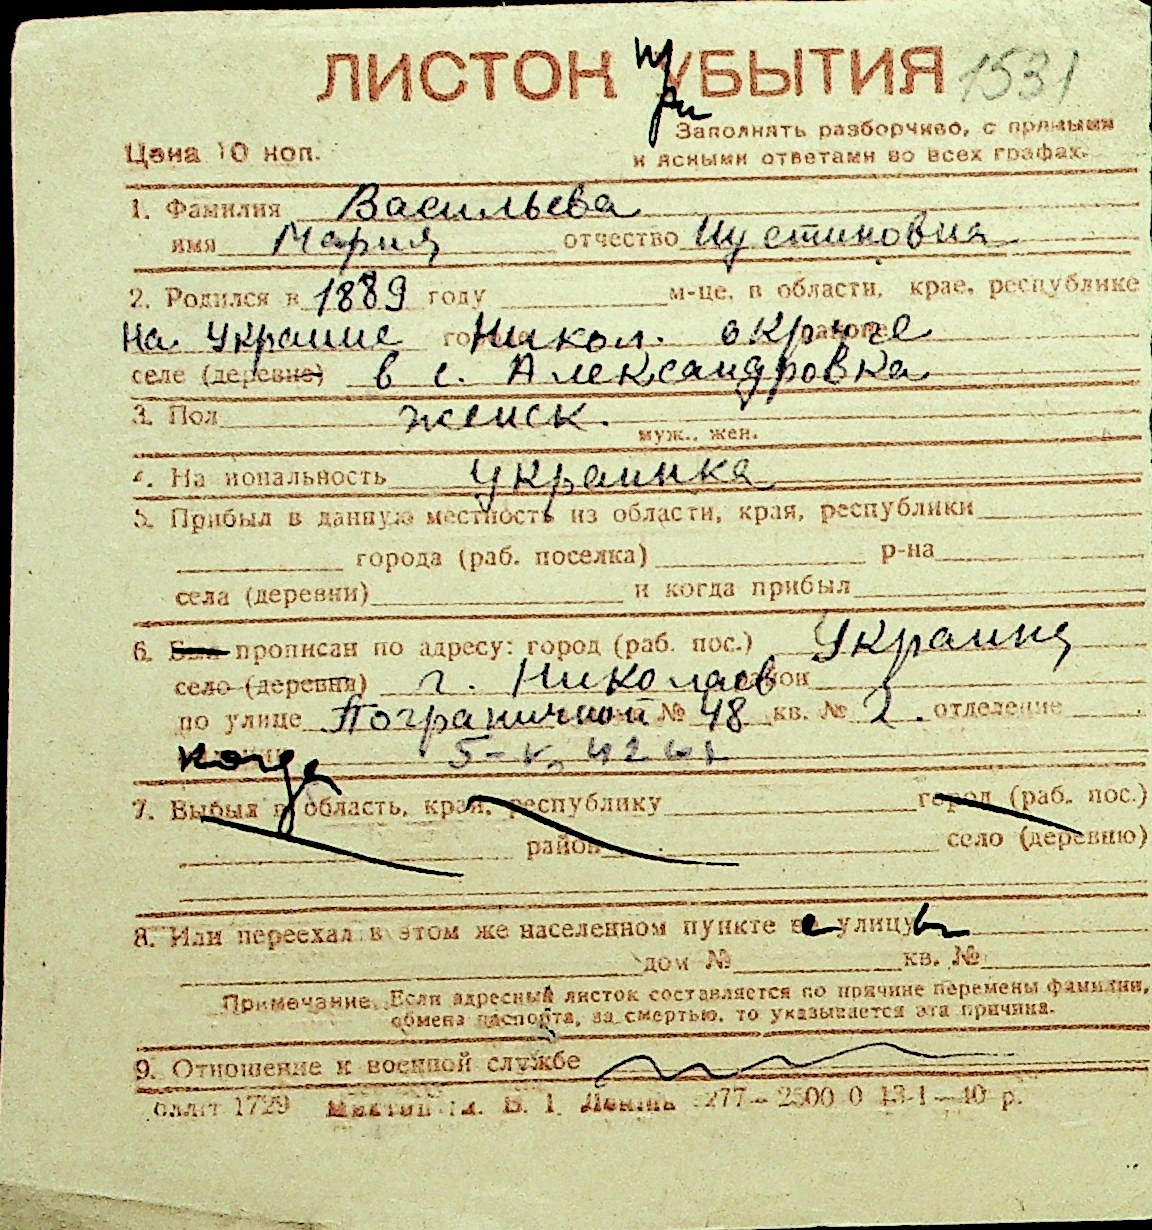 ЛИСТОК УБЫТИЯ 1531
при
Цена 10 коп.
Заполнять разборчиво, с прямыми
и ясными ответами во всех графах.
1. Фамилия Васильева
имя Мария отчество Иустиновна
2. Родился в 1889 году м-це, в области, крае, республике
На Украине Никол. округе
селе (деревне) в с. Александровка
3. Пол женск.
муж., жен.
4. Национальность украинка
5. Прибыл в данную местность из области, края, республики
города (раб. поселка) р-на
села (деревни) и когда прибыл
6. Был прописан по адресу: город (раб. пос.) Украина
село (деревня) г. Николаев район
по улице Пограничной № 48 кв. № 2. отделение
когда 5-V,
7. Выбыл в область, край, республику город (раб. пос.)
район село (деревню)
8. Или переехал в этом же населенном пункте с улицу в
дом № кв. №
Примечание. Если адресный листок составляется по причине перемены фамилии,
обмена паспорта, за смертью, то указывается эта причина.
9. Отношение к военной службе
1729 277—2500 0 13-1—40 р.